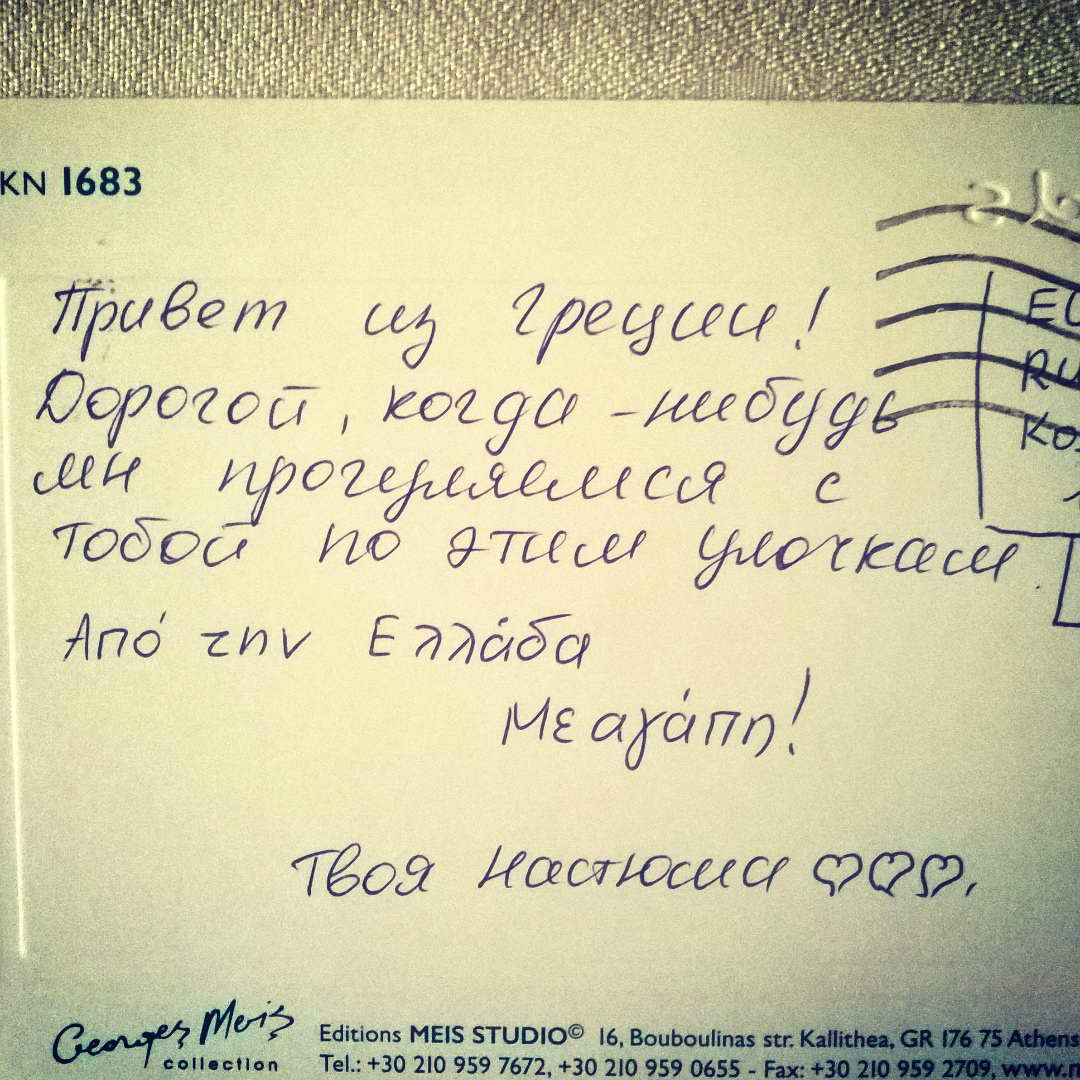 KN 1683
Привет из Греции!
Дорогой, когда-нибудь
мы прогуляемся с
тобой по этим улочкам.
Από την Ελλάδα
Με αγάπη!
Твоя Настюша ♡♡♡,
Georges Meis
collection
Editions MEIS STUDIO© 16, Bouboulinas str. Kallithea, GR 176 75 Athens
Tel.: +30 210 959 7672, +30 210 959 0655 - Fax: +30 210 959 2709,